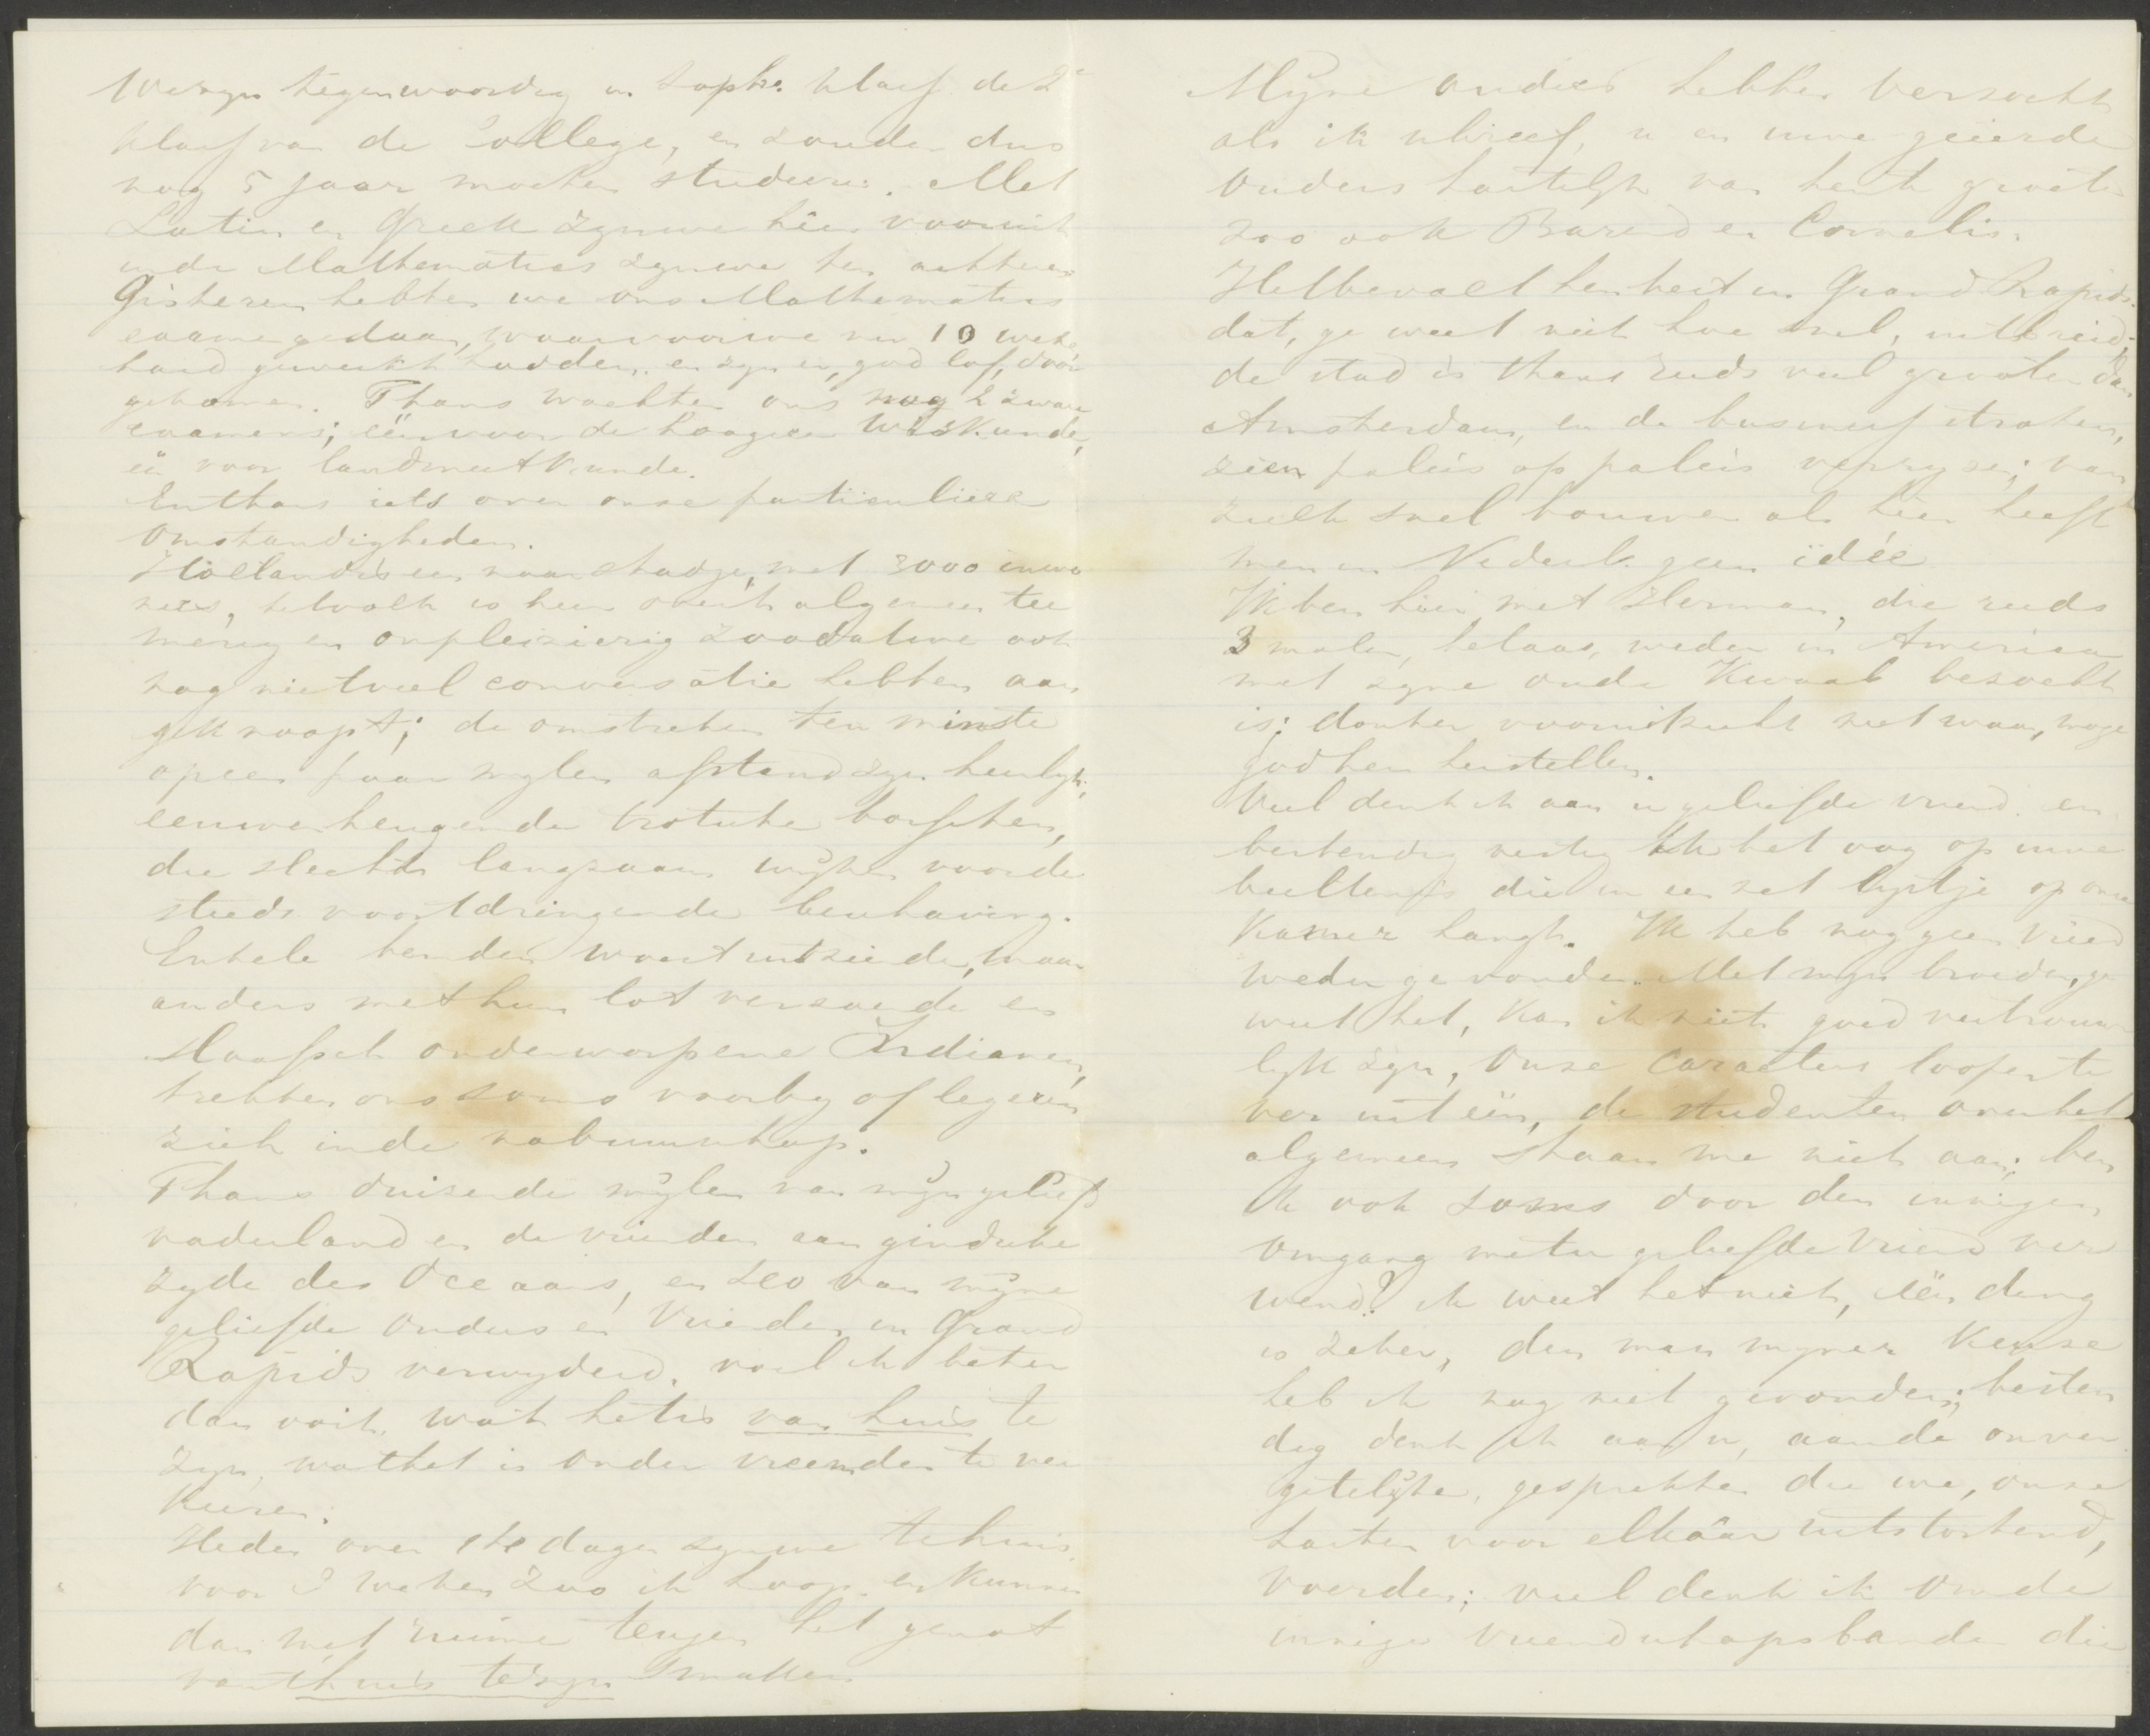 We zyn tegenwoordig in Soph. klasf. de 2e
klasf van de College, en zouden dus
nog 5 jaar moeten studeeren. Met
Latin en Greek zynwe hier vooruit
inde Mathematics zynwe ten achteren
Gisteren hebben we ons Mathematics
examen gedaan, waarvoor we nu 10 weken
hard gewerkt hadden. en zyn er, god lof, door
gekomen. Thans wachten ons nog 2 zware
examens; één voor de hoogere Wiskunde,
één voor landmeetkunde.
En thans iets over onze particuliere
omstandigheden.
Holland is een naar stadje, met 3000 inwo
ners, het volk is hier over 't algemeen tee
merig en onpleizierig zoodat we ook
nog niet veel conversatie hebben aan
geknoopt; de omstreken ten minste
op een paar mylen afstand zyn heerlyk;
eeuwenheugende trotsche bosschen,
die slechts langzaam wyken voor de
steeds voortdringende beschaving.
Enkele benden woest uitziende, maar
anders met hun lot verzoende en
slaafsch onderworpene Indianen,
trekken ons soms voorby of legeren
zich inde nabuurschap.
Thans duizende mylen van myn geliefd
vaderland en de vrienden aan gindsche
zyde des Oceaans, en zoo van myne
geliefde Ouders en Vrienden in Grand
Rapids verwyderd, voel ik beter
dan ooit, wat het is van huis te
zyn, wat het is onder vreemden te ver
keeren.
Heden over 14 dagen zynwe te huis
voor 2 weken zoo ik hoop en kunnen
dan met ruime teugen het genot
van thuis te zyn smaken
Myne ouders hebben verzocht
als ik u schreef, u en uwe geëerde
Ouders hartelyk van hen te groeten
zoo ook Barend en Cornelis.
Het bevalt hen best in Grand Rapids.
dat, ge weet niet hoe snel, uitbreid;
de stad is thans reeds veel grooter dan
Amsterdam, en de business straten,
zien paleis op paleis verryzen; van
zulk snel bouwen als hier heeft
men in Nederl. geen idée
Ik ben hier met Herman, die reeds
3 malen, helaas, weder in America
met zyne oude Kwaal bezocht
is; donker vooruitzicht niet waar, moge
god hem herstellen.
Veel denk ik aan u geliefde vriend en
bestendig vestig ik het oog op uwe
beeltenis die in een net lystje op onze
Kamer hangt. Ik heb nog geen vriend
weder gevonden. Met myn broeder, ge
weet het, kan ik niet goed vertrouwe
lyk zyn, Onze caracters loopen te
ver uit één, de studenten over het
algemeen staan me niet aan; ben
ik ook soms door den innigen
omgang met u geliefde vriend ver
wend? ik weet het niet, één ding
is zeker, den man myner keuze
heb ik nog niet gevonden; besten
dig denk ik aan u, aan de onver
getelyke, gesprekken die we, onze
harten voor elkâar uitstortend,
voerden; veel denk ik om de
innige vriendschapsbanden die